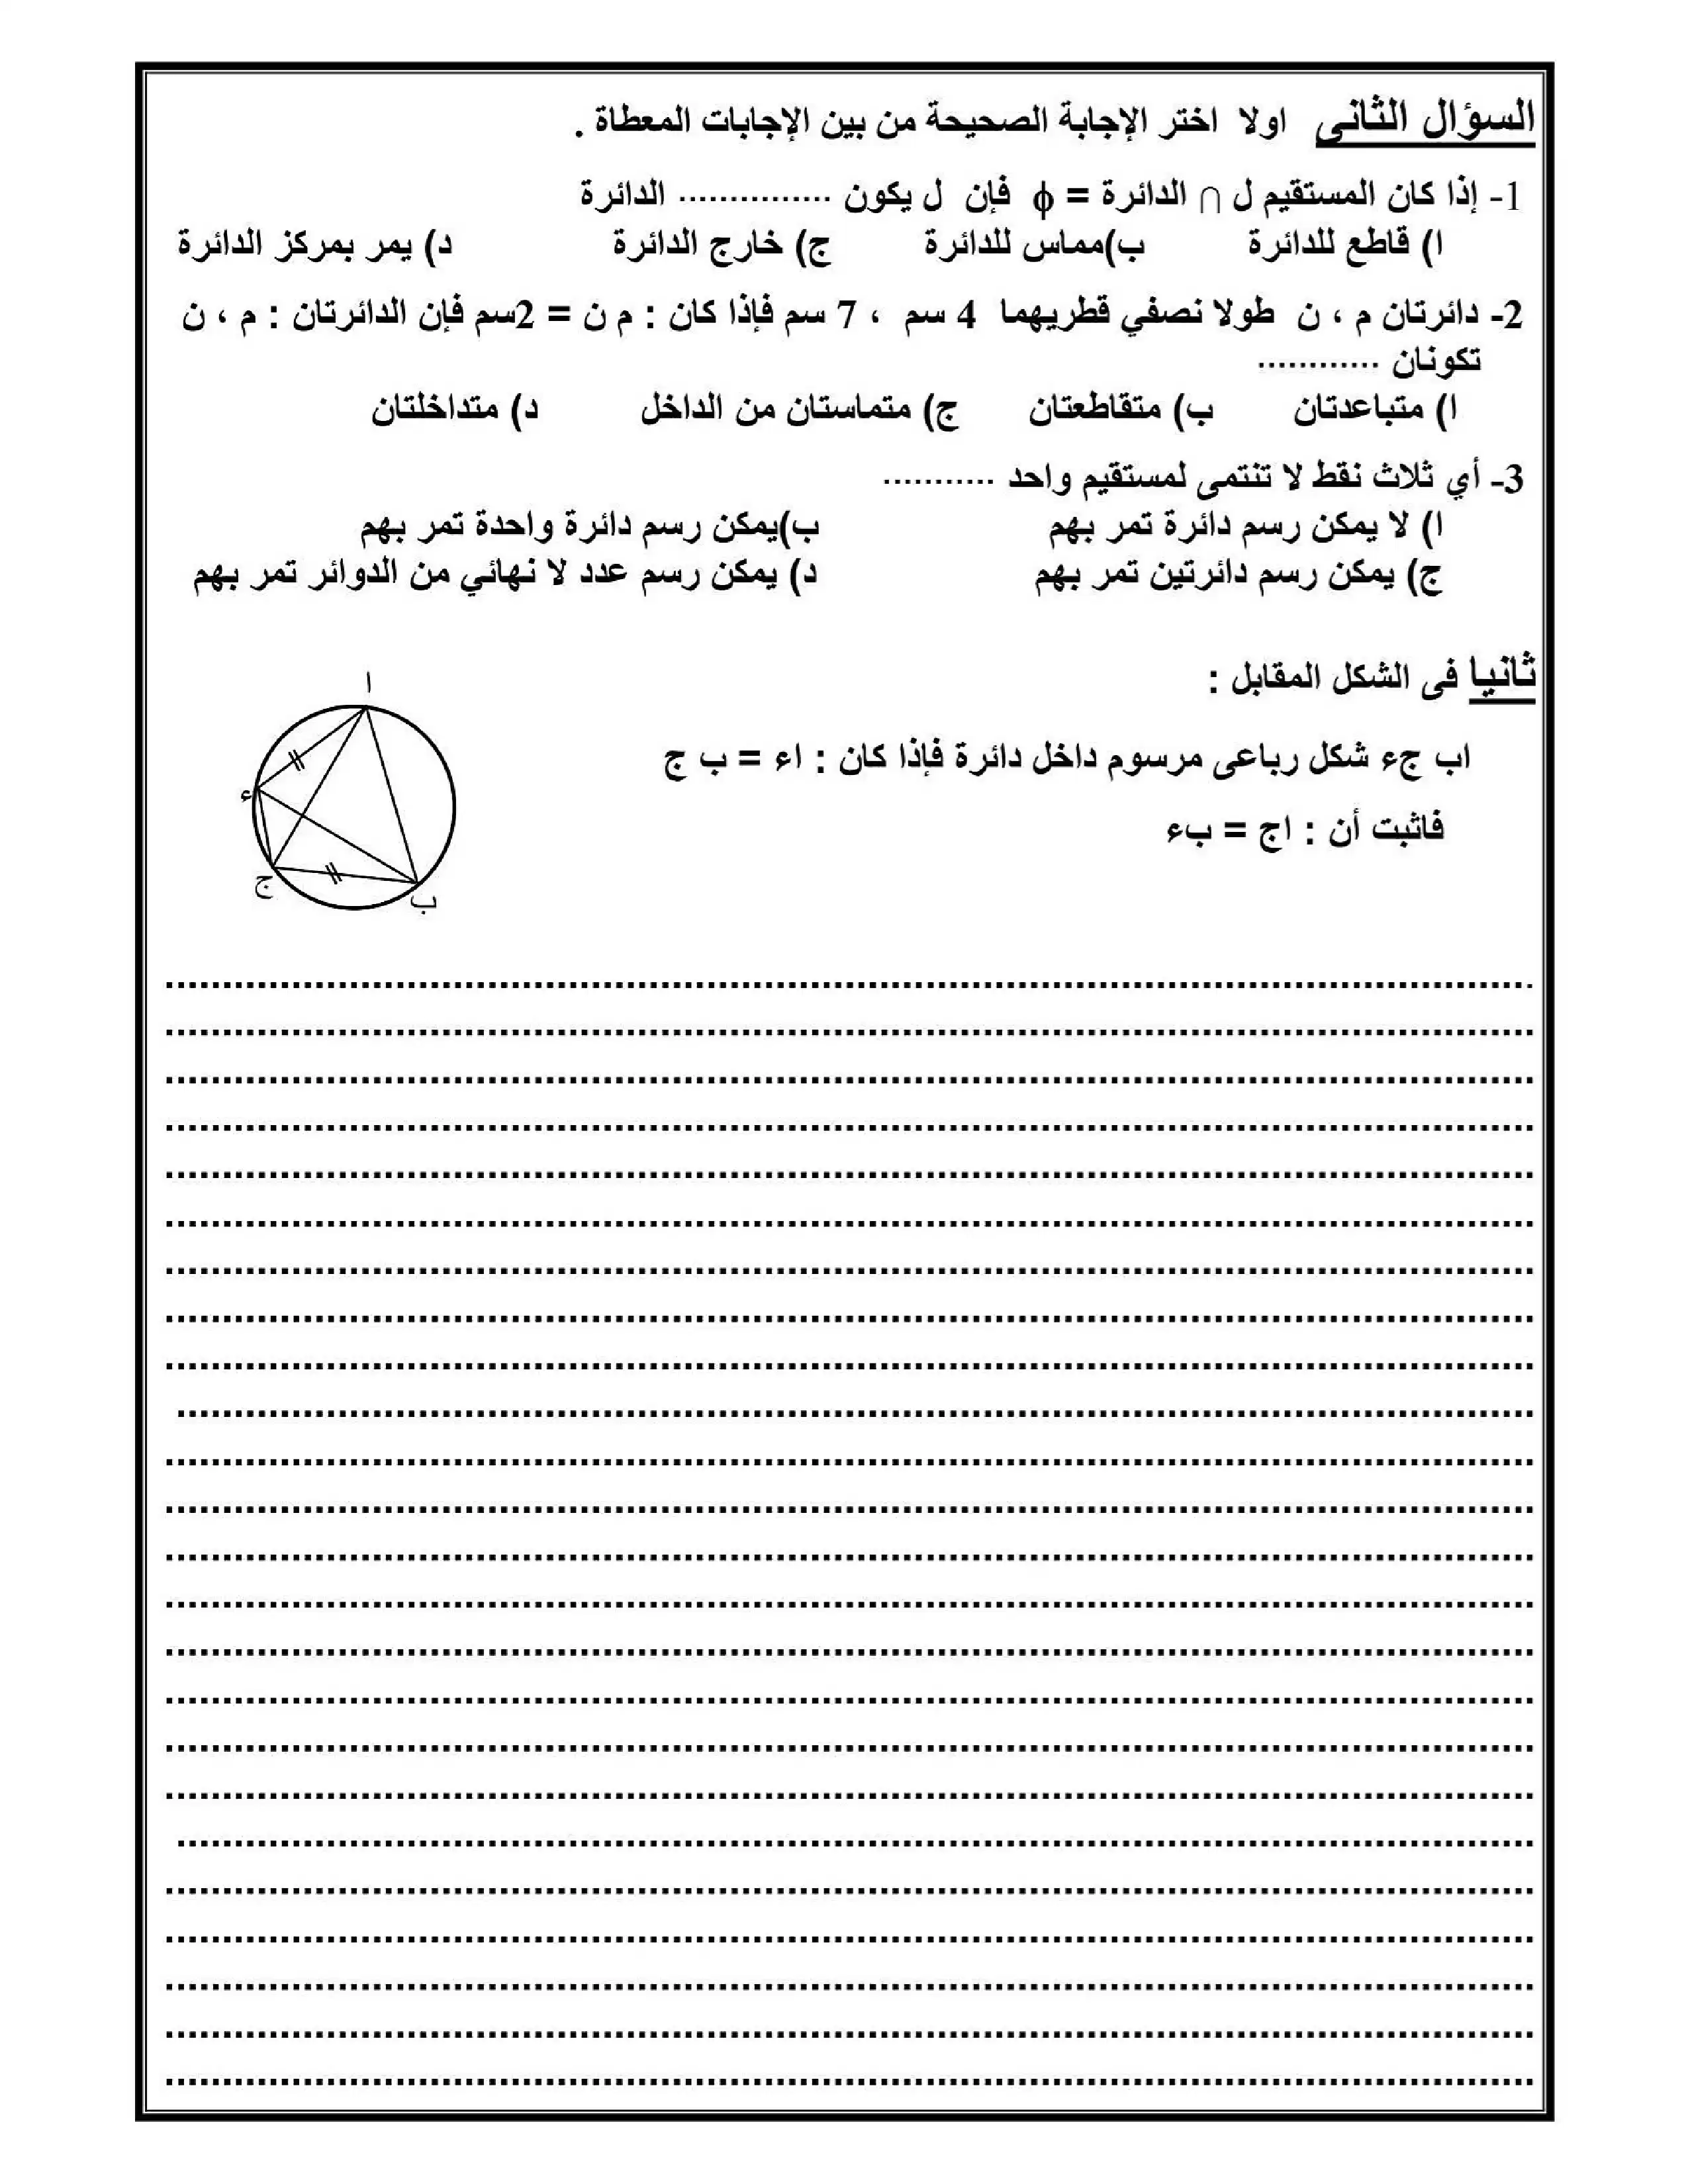 السؤال الثانى اولا اختر الإجابة الصحيحة من بين الإجابات المعطاة .
1- إذا كان المستقيم ل ∩ الدائرة = ϕ فإن ل يكون ............... الدائرة
ا) قاطع للدائرة ب)مماس للدائرة ج) خارج الدائرة د) يمر بمركز الدائرة
2- دائرتان م ، ن طولا نصفي قطريهما 4 سم ، 7 سم فإذا كان : م ن = 2سم فإن الدائرتان : م ، ن
تكونان ............
ا) متباعدتان ب) متقاطعتان ج) متماستان من الداخل د) متداخلتان
3- أي ثلاث نقط لا تنتمى لمستقيم واحد ...........
ا) لا يمكن رسم دائرة تمر بهم ب)يمكن رسم دائرة واحدة تمر بهم
ج) يمكن رسم دائرتين تمر بهم د) يمكن رسم عدد لا نهائي من الدوائر تمر بهم
ثانيا فى الشكل المقابل :
اب جء شكل رباعى مرسوم داخل دائرة فإذا كان : اء = ب ج
فاثبت أن : اج = بء
ا
ء
ج
ب